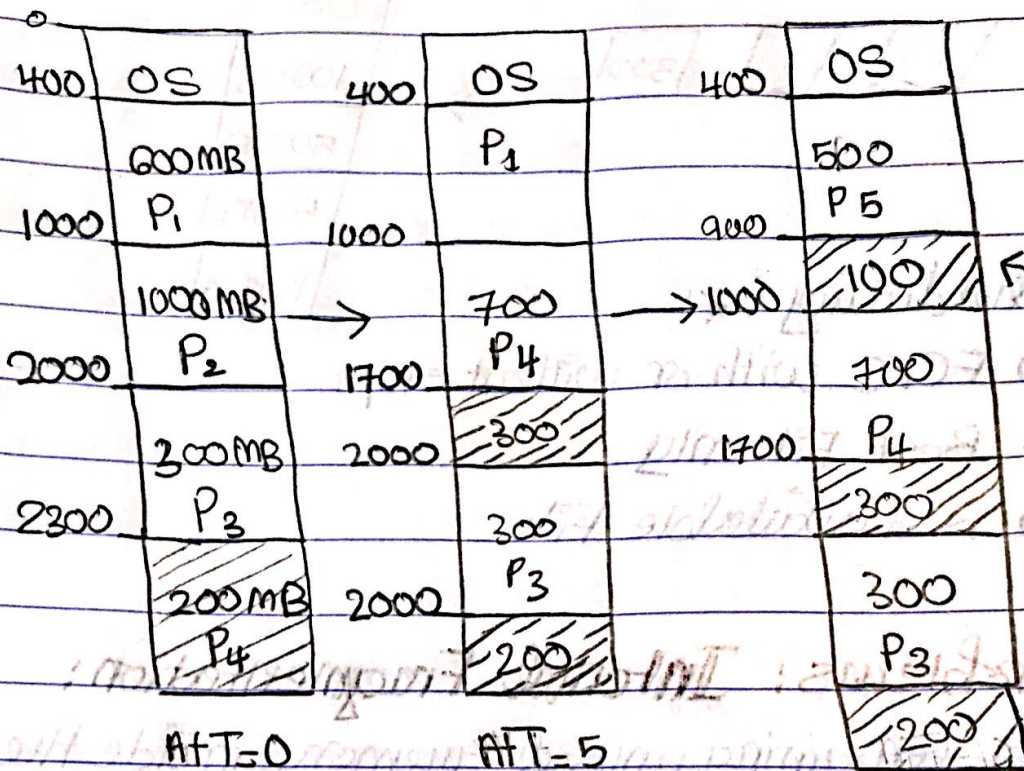 0
400 OS
600MB
P1
1000
1000MB
P2
2000
300MB
P3
2300
200MB
P4
At T=0
400 OS
P1
1000
700
P4
1700
300
2000
300
P3
2000
200
At T=5
400 OS
500
P5
900
100
1000
700
P4
1700
300
300
P3
200